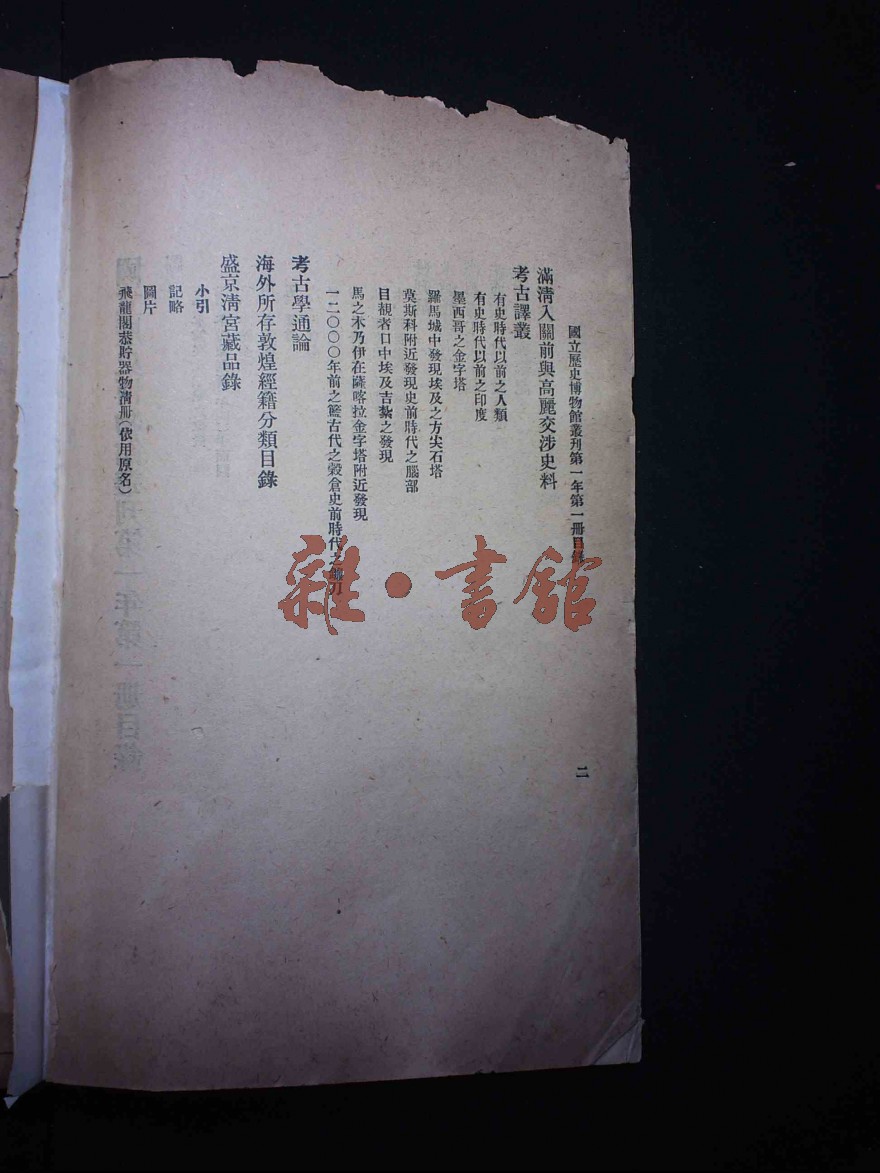 國立歷史博物館叢刊第一年第一冊目錄
二
滿清入關前與高麗交涉史料
考古譯叢
有史時代以前之人類
有史時代以前之印度
墨西哥之金字塔
羅馬城中發現埃及之方尖石塔
莫斯科附近發現史前時代之腦部
目覩者口中埃及古物之發現
馬之木乃伊在薩喀拉金字塔附近發現
一二〇〇〇年前之籃古代之穀倉史前時代之
考古學通論
海外所存敦煌經籍分類目錄
盛京清宮藏品錄
小引
記略
圖片
飛龍閣恭貯器物清冊(依用原名)
雜·書館